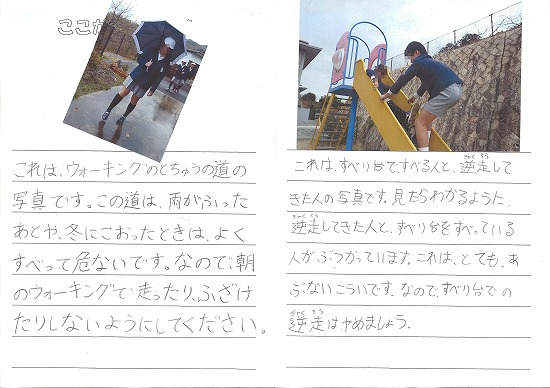 ここが
これは、ウォーキングのとちゅうの道の
写真です。この道は、雨がふった
あとや、冬にこおったときは、よく
すべって危ないです。なので、朝
のウォーキングで走ったり、ふざけ
たりしないようにしてください。
これは、すべり台ですべる人と、逆走して
きた人の写真です。見たらわかるように、
逆走してきた人と、すべり台をすべっている
人がぶつかっています。これは、とても、あ
ぶないこういです。なので、すべり台での
逆走はやめましょう。